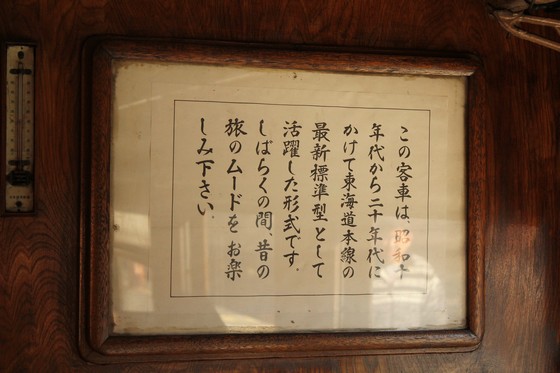 この客車は、昭和十
年代から二十年代に
かけて東海道本線の
最新標準型として
活躍した形式です。
しばらくの間、昔の
旅のムードを お楽
しみ下さい。